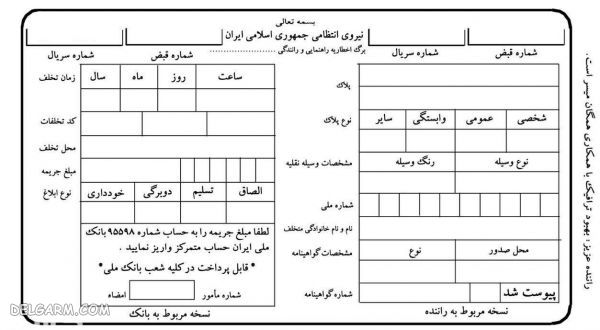 بسمه تعالی
نیروی انتظامی جمهوری اسلامی ایران
برگ اخطاریه راهنمایی و رانندگی
شماره قبض
شماره سریال
پلاک
شخصی عمومی وابستگی سایر
نوع پلاک
نوع وسیله رنگ وسیله
مشخصات وسیله نقلیه
شماره ملی
نام و نام خانوادگی متخلف
محل صدور نوع
مشخصات گواهینامه
پیوست شد
شماره گواهینامه
نسخه مربوط به راننده
شماره قبض
شماره سریال
ساعت روز ماه سال
زمان تخلف
کد تخلفات
محل تخلف
مبلغ جریمه
الصاق تسلیم دوبرگی خودداری
نوع ابلاغ
لطفا مبلغ جریمه را به حساب شماره ۹۵۵۹۸ بانک
ملی ایران حساب متمرکز واریز نمایید .
* قابل پرداخت در کلیه شعب بانک ملی*
شماره مأمور امضاء
نسخه مربوط به بانک
راننده عزیز، بهبود ترافیک با همکاری همگان میسر است.
DELGARM.COM